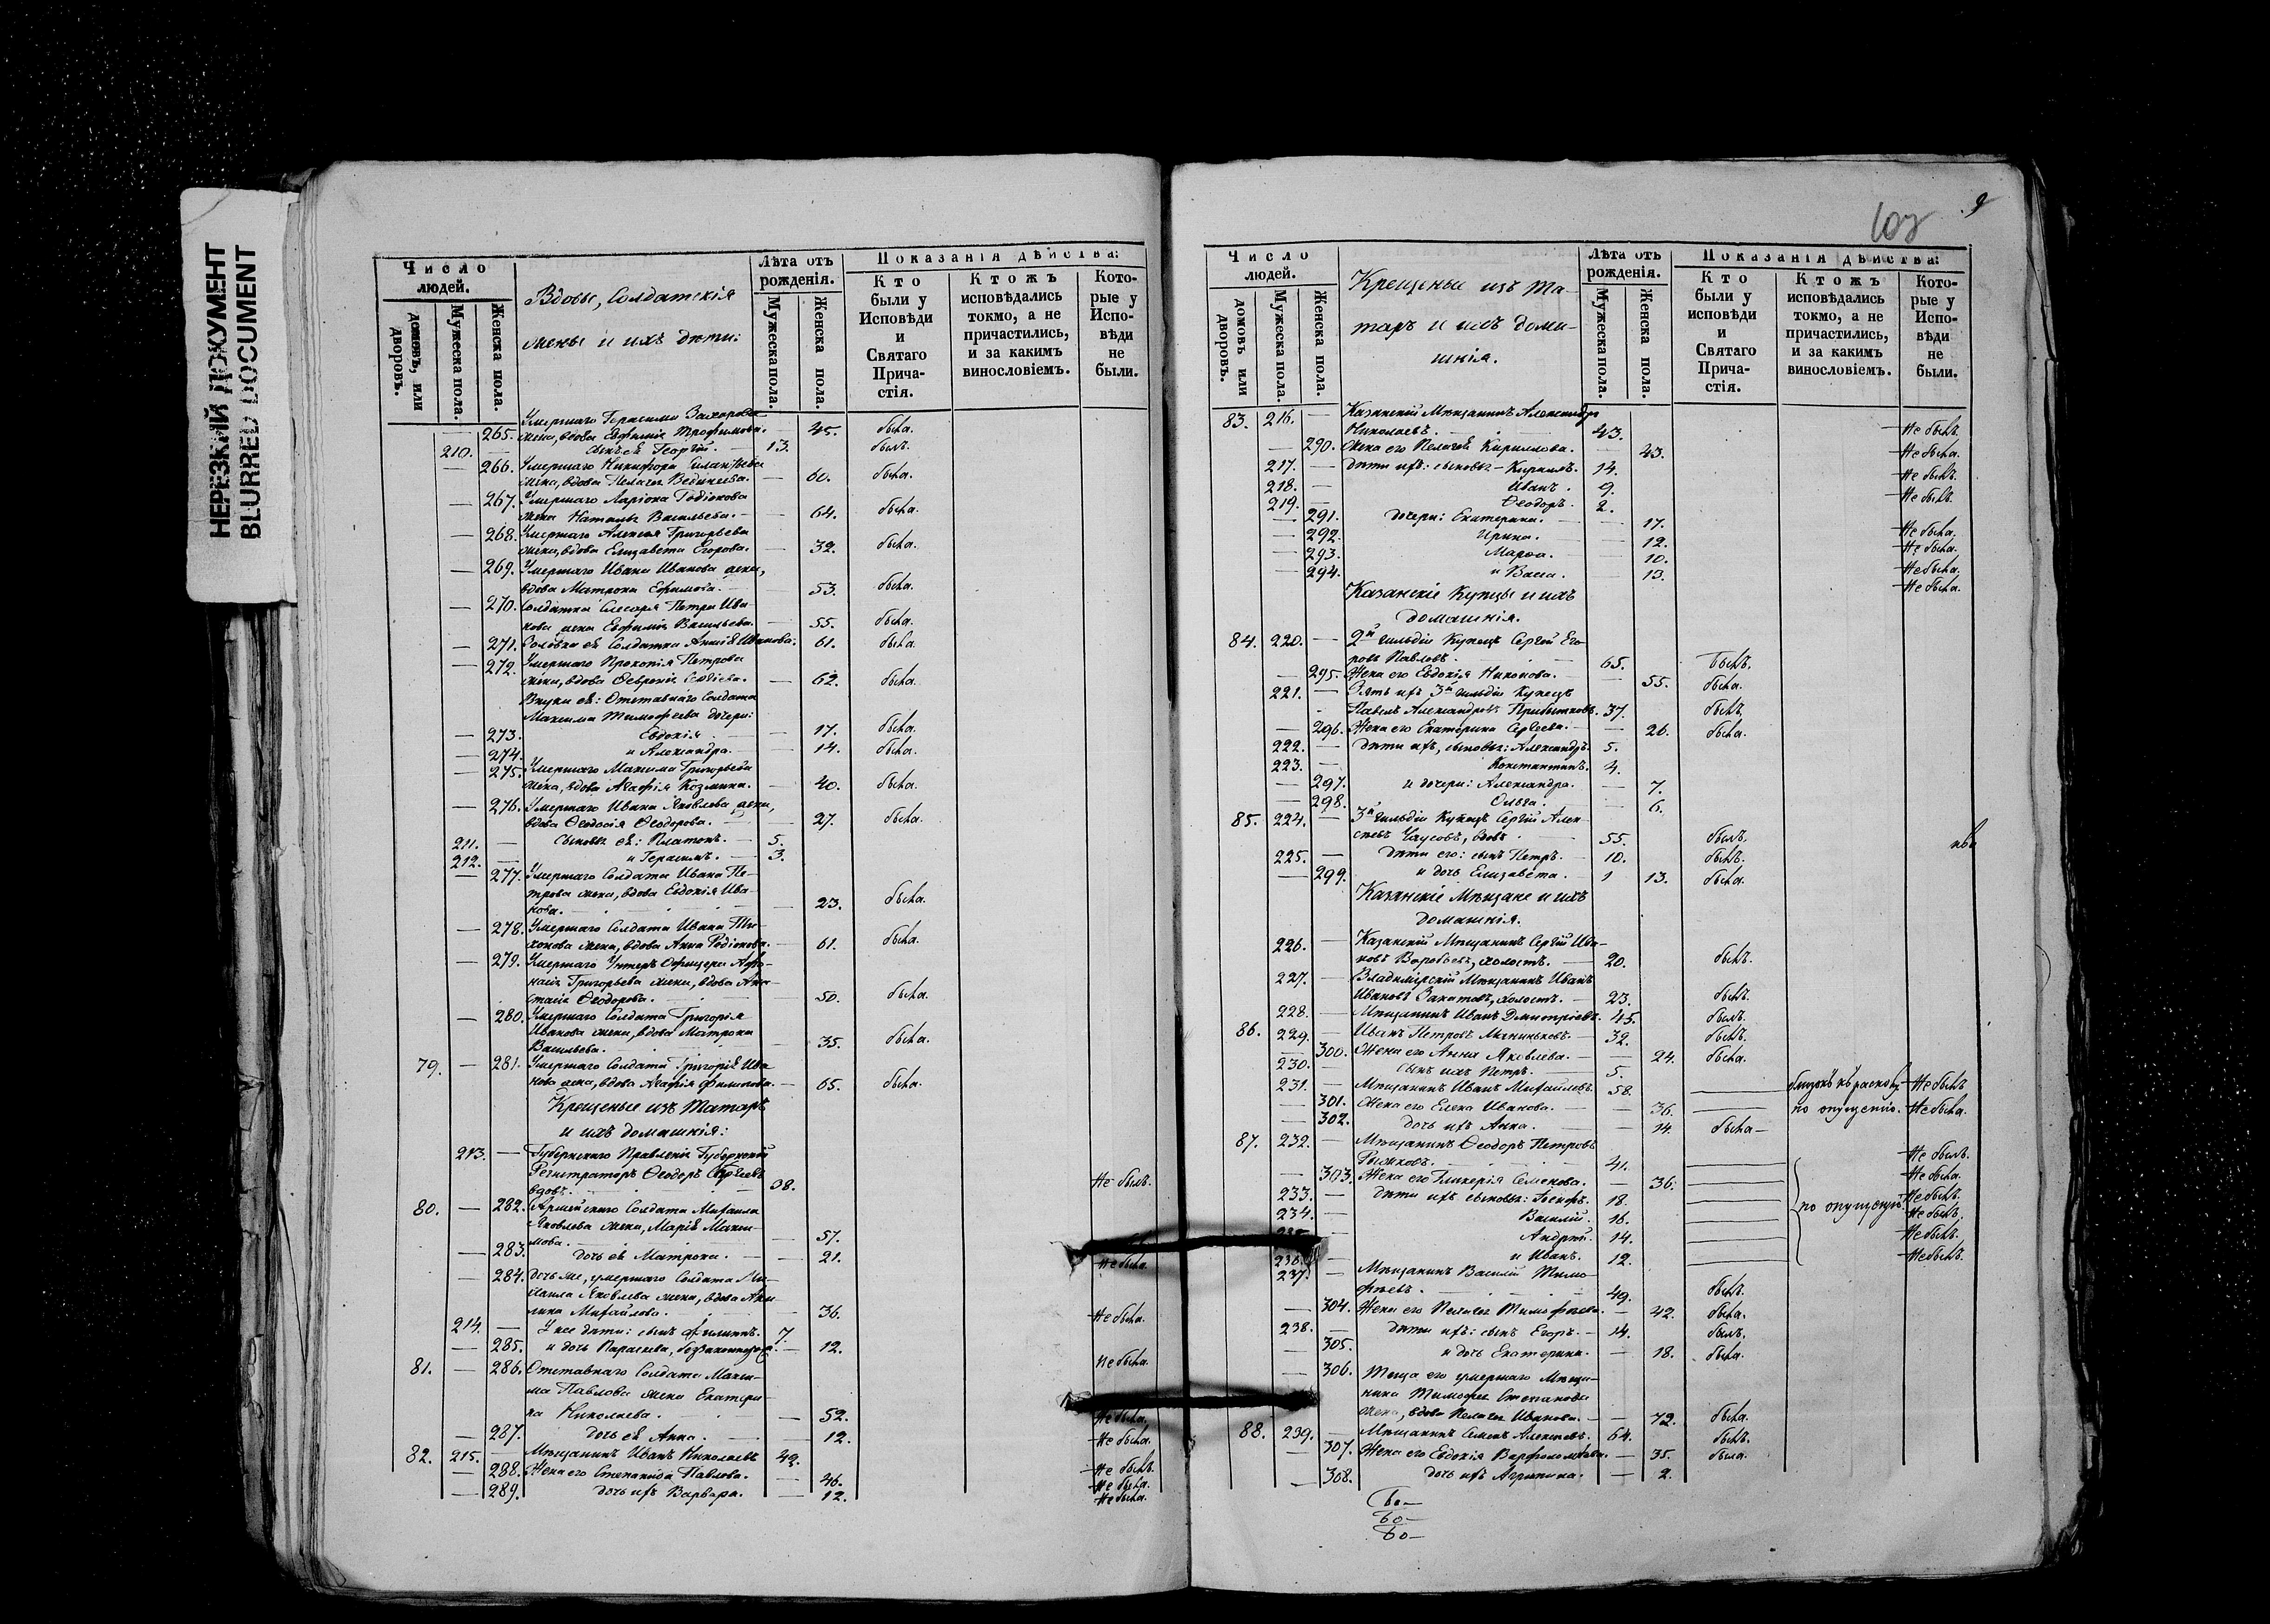 НЕРЕЗКИЙ ДОКУМЕНТ
BLURRED DOCUMENT
Число людей.
домовъ, или дворовъ.
Мужеска пола.
Женска пола.
Вдовы, Солдатскія
жены и ихъ дѣти:
Лѣта отъ рожденія.
Мужеска пола.
Женска пола.
Показанія дѣйства:
Кто были у Исповѣди и Святаго Прича-стія.
Ктожъ исповѣдались токмо, а не причастились, и за какимъ винословіемъ.
Кото-рые у Испо-вѣди не были.
Умершаго Герасима Захарова
— 265. жена, вдова Евфимія Трофимова. — 45. была.
210. — сынъ еѣ Георгій. — 13. былъ.
— 266. Умершаго Никифора
жена, вдова Пелагея — 60. была.
— 267. Умершаго Ларіона Родіонова
жена Наталья Васильева. — 64. была.
— 268. Умершаго Алексѣя Григорьева
жена, вдова Елизавета Егорова. — 32. была.
— 269. Умершаго Ивана Иванова жена,
вдова Матрона Ефимова. — 53. была.
— 270. Солдатка Слесаря Петра Ива-
нова жена Евфимія Васильева. — 55. была.
— 271. Золовка еѣ Солдатка Анна Иванова. 61. была.
— 272. Умершаго Прокопія Петрова
жена, вдова Февронія — 62. была.
Внуки еѣ: Отставнаго Солдата
Максима Тимофеева дочери:
— 273. Евдокія — 17. была.
— 274. и Александра. — 14. была.
— 275. Умершаго Максима Григорьева
жена, вдова Агафія Козмина. — 40. была.
— 276. Умершаго Ивана Яковлева жена,
вдова Ѳеодосія Ѳеодорова. — 27. была.
211. — Сыновья еѣ: Платонъ. — 5.
212. — и Герасимъ. — 3.
— 277. Умершаго Солдата Ивана Пе-
трова жена, вдова Евдокія Ива-
нова. — 23. была.
— 278. Умершаго Солдата Ивана Ти-
хонова жена, вдова Анна Родіонова. — 61. была.
— 279. Умершаго Унтеръ Офицера Афа-
насія Григорьева жена, вдова Ана-
стасія Ѳеодорова. — 50. была.
— 280. Умершаго Солдата Григорія
Иванова жена, вдова Матрона
Васильева. — 35. была.
79. — 281. Умершаго Солдата Григорія Ива-
нова жена, вдова Агафія Филипова. — 65. была.
Крещеные изъ Татаръ
и ихъ домашнія:
213. — Губернскаго Правленія Губернскій
Регистраторъ Ѳеодоръ Сергѣевъ
вдовъ. — 38. Не былъ.
80. — 282. Армейскаго Солдата Михаила
Яковлева жена, Марія Макси-
мова. — 57.
— 283. дочь еѣ Матрона. — 21. Не была.
— 284. дочь же, умершаго Солдата Ми-
хаила Яковлева жена, вдова Аку-
лина Михайлова. — 36. Не была.
214. — У нее дѣти: сынъ Филиппъ. 7.
— 285. и дочь Параскева, беззаконнорож. — 12. Не была.
81. — 286. Отставнаго Солдата Макси-
ма Павлова жена Екатери-
на Николаева. — 52. Не была.
— 287. дочь еѣ Анна. — 12. Не была.
82. 215. — Мѣщанинъ Иванъ Николаевъ 42. Не былъ.
— 288. Жена его Степанида Павлова. — 46. Не была.
— 289. дочь ихъ Варвара. — 12. Не была.
9
Число людей.
домовъ или дворовъ.
Мужеска пола.
Женска пола.
Крещеные изъ Та-
таръ и ихъ дома-
шнія.
Лѣта отъ рожденія.
Мужеска пола.
Женска пола.
Показанія дѣйства:
Кто были у исповѣди и Святаго Прича-стія.
Ктожъ исповѣдались токмо, а не причастились, и за какимъ винословіемъ.
Кото-рые у Испо-вѣди не были.
83. 216. — Казанскій Мѣщанинъ Александръ
Николаевъ. 43. Не былъ.
— 290. Жена его Пелагея Кирилова. — 43. Не была.
217. — дѣти ихъ: сыновья — Кирилъ. 14. Не былъ.
218. — Иванъ. 9. Не былъ.
219. — Ѳеодоръ. 2.
— 291. дочери: Екатерина. — 17. Не была.
— 292. Ирина. — 12. Не была.
— 293. Марѳа. — 10. Не была.
— 294. и Васса. — 13. Не была.
Казанскіе Купцы и ихъ
домашнія.
84. 220. — 2й гильдіи Купецъ Сергѣй Его-
ровъ Павловъ. 65. Былъ.
— 295. Жена его Евдокія Никонова. — 55. была.
221. — Зять ихъ 3й гильдіи Купецъ
Павелъ Александровъ Прибытковъ. 37. былъ.
— 296. Жена его Екатерина Сергѣева. — 26. была.
222. — дѣти ихъ, сыновья: Александръ. 5.
223. — Константинъ. 4.
— 297. и дочери: Александра. — 7.
— 298. Ольга. — 6.
85. 224. — 3й гильдіи Купецъ Сергѣй Алек-
сѣевъ Чаусовъ, вдовъ 55. былъ.
225. — дѣти его: сынъ Петръ. 10. былъ.
— 299. и дочь Елизавета. 1 13. была.
Казанскіе Мѣщане и ихъ
домашнія.
226. — Казанскій Мѣщанинъ Сергѣй Ива-
новъ Воробьевъ, холостъ. — 20. былъ.
227. — Владимірскій Мѣщанинъ Иванъ
Ивановъ холостъ. — 23. былъ.
228. — Мѣщанинъ Иванъ Дмитріевъ. 45. былъ.
86. 229. — Иванъ Петровъ 32. былъ.
— 300. Жена его Анна Яковлева. — 24. была.
230. — сынъ ихъ Петръ. 5.
231. — Мѣщанинъ Иванъ Михайловъ. 58. Не былъ
— 301. Жена его Елена Иванова. — 36. по опущенію. Не была.
— 302. дочь ихъ Анна. — 14. была —
87. 232. — Мѣщанинъ Ѳеодоръ Петровъ
Рыжковъ. 41. Не былъ.
— 303. Жена его Гликерія Семенова. — 36. Не была.
233. — дѣти ихъ сыновья: 18. по опущенію. Не былъ.
234. — Василій. 16. Не былъ.
235. — Андрей. 14. Не былъ.
236. — и Иванъ. 12. Не былъ.
237. — Мѣщанинъ Василій Тимо-
фѣевъ. 49. былъ.
— 304. Жена его Пелагея Тимофѣева. — 42. была.
238. — дѣти ихъ: сынъ Егоръ. — 14. былъ.
— 305. и дочь Екатерина. — 18. была.
— 306. Теща его умершаго Мѣща-
нина Тимофея Степанова
жена, вдова Пелагея Иванова. — 72. была.
88. 239. — Мѣщанинъ Семенъ Алексѣевъ. 64. былъ.
— 307. Жена его Евдокія Варфоломѣева. — 35. была.
— 308. дочь ихъ Агрипина. — 2.